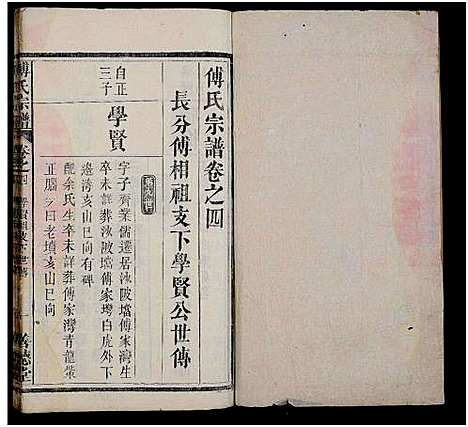 傅氏宗譜卷之四
長分傅相祖支下學賢公世傳
自正
三子
學賢
字子 業儒遷居 陂壋傅家灣生
卒未詳葬 陂壋傅家灣白虎外下
邉湾亥山巳向有碑
配余氏生卒未詳葬傅家灣青龍嘴
正腦 曰老墳亥山巳向
傅氏宗譜
卷之四